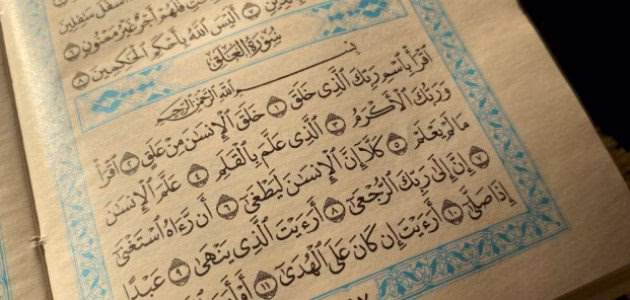 أَسْفَلَ سَٰفِلِينَ
فَلَهُمْ أَجْرٌ غَيْرُ مَمْنُونٍ ٦
أَلَيْسَ ٱللَّهُ بِأَحْكَمِ ٱلْحَٰكِمِينَ ٨
سُورَةُ ٱلْعَلَقِ
بِسْمِ ٱللَّهِ ٱلرَّحْمَٰنِ ٱلرَّحِيمِ
ٱقْرَأْ بِٱسْمِ رَبِّكَ ٱلَّذِى خَلَقَ ١ خَلَقَ ٱلْإِنسَٰنَ مِنْ عَلَقٍ ٢ ٱقْرَأْ
وَرَبُّكَ ٱلْأَكْرَمُ ٣ ٱلَّذِى عَلَّمَ بِٱلْقَلَمِ ٤ عَلَّمَ ٱلْإِنسَٰنَ
مَا لَمْ يَعْلَمْ ٥ كَلَّآ إِنَّ ٱلْإِنسَٰنَ لَيَطْغَىٰٓ ٦ أَن رَّءَاهُ ٱسْتَغْنَىٰٓ
٧ إِنَّ إِلَىٰ رَبِّكَ ٱلرُّجْعَىٰٓ ٨ أَرَءَيْتَ ٱلَّذِى يَنْهَىٰ ٩ عَبْدًا
إِذَا صَلَّىٰٓ ١٠ أَرَءَيْتَ إِن كَانَ عَلَى ٱلْهُدَىٰٓ ١١ أَوْ أَمَرَ